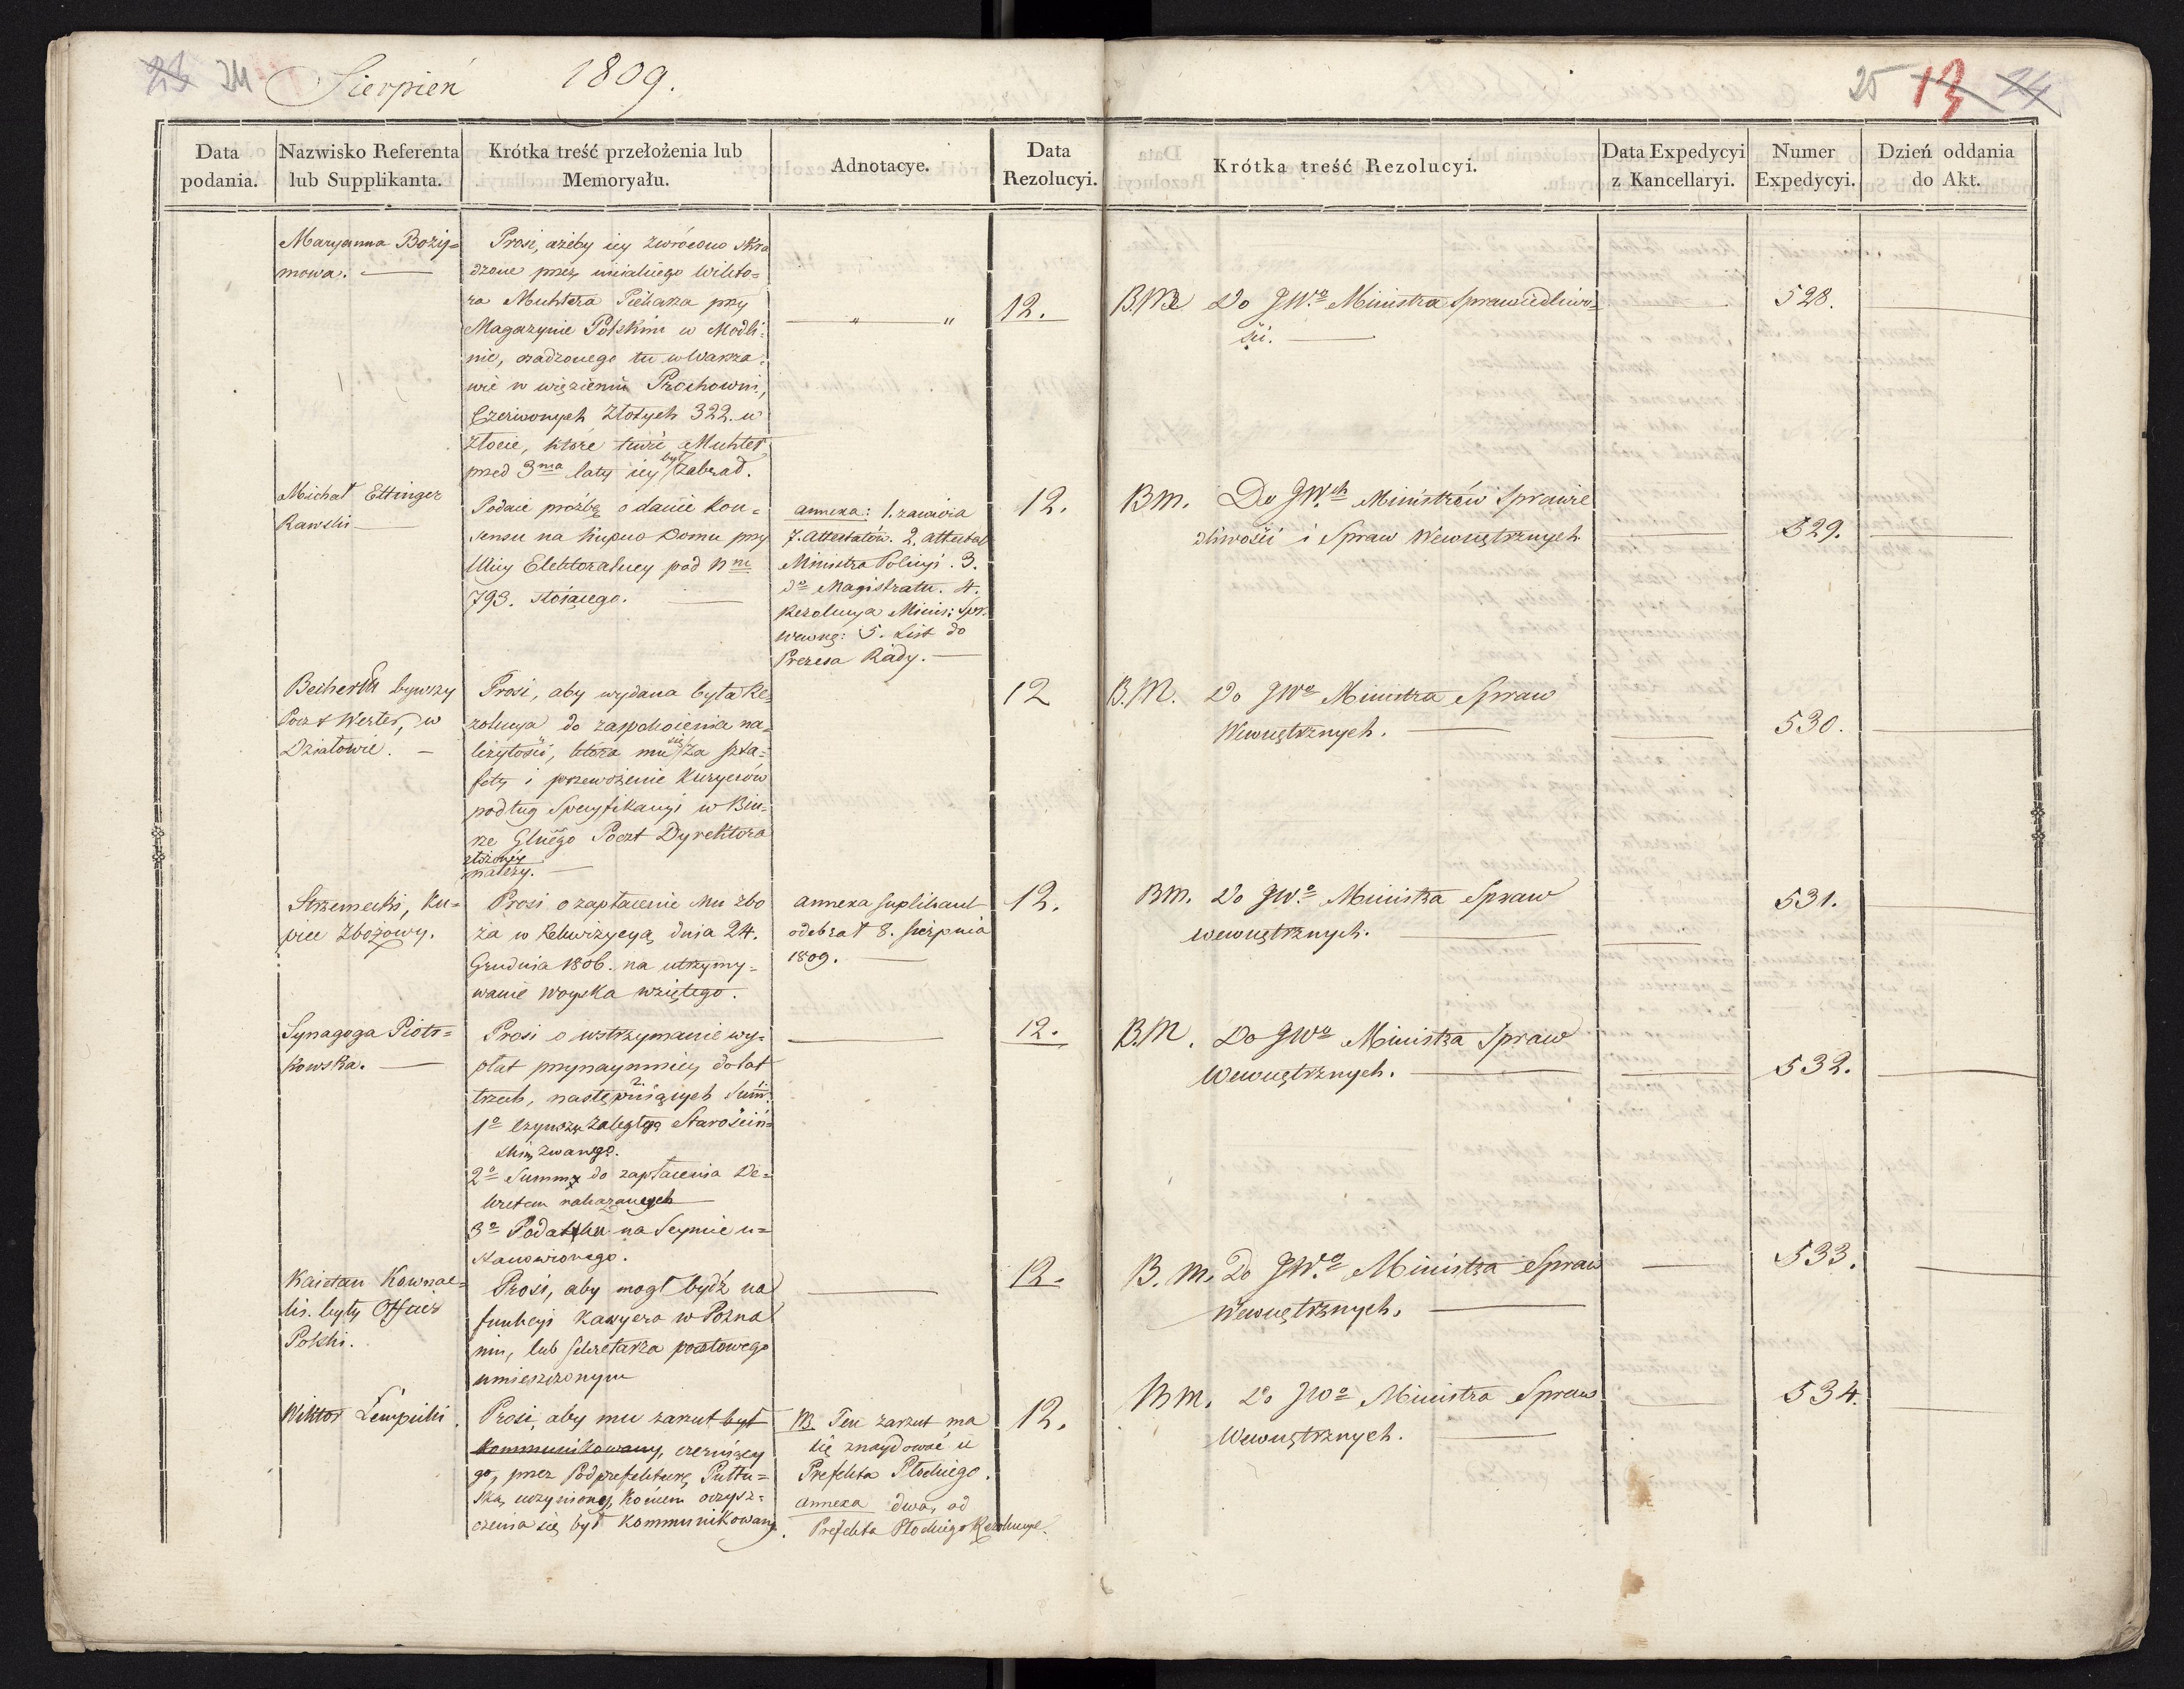 23 24 Sierpień 1809.
25 13 24
Data podania.
Nazwisko Referenta lub Supplikanta.
Krótka treść przełożenia lub Memoryału.
Adnotacye.
Data Rezolucyi.
Krótka treść Rezolucyi.
Data Expedycyi z Kancellaryi.
Numer Expedycyi.
Dzień oddania do Akt.
Maryanna Boży=
mowa.
Prosi, ażeby iey zwrócono skra
dzone przez
ra Muhtera Piekarza przy
Magazynie Polskim w Modli:
nie, osadzonego tu w Warsza:
wie w więzieniu Prochowni,
Czerwonych Złotych 322. w
złocie, które tenże Muhter
przed 3ma laty iey był zabrał.
" "
12.
Do JWo Ministra Sprawiedliwo=
ści.
528.
Michał Ettinger
Rawski
Podaie prozbę o danie Kon=
sensu na kupno Domu przy
Ulicy Elektoralney pod Nm
793. stoiącego.
annexa: 1. zawiera
7. Attestatów. 2. attestat
Ministra Policyi. 3.
do Magistratu. 4.
Rezolucya Minis: Spr:
wewnę: 5. List do
Prezesa Rady.
12.
BM. Do JWch Ministrów Sprawie
dliwości i Spraw Wewnętrznych
529.
bywszy
Poczt w
Działowie.
Prosi, aby wydana była Re=
zolucya do zaspokoienia na=
leżytości, która mu się za szta=
fety i przewożenie Kuryerów
podług Specyfikacyi w Biu=
rze Głnego Poczt Dyrektora
złożoney
należy.
12
B.M. Do JWo Ministra Spraw
Wewnętrznych.
530.
Strzemecki, Ku=
piec Zbożowy.
Prosi o zapłacenie Mu zbo
ża w Rekwizycyą dnia 24.
Grudnia 1806. na utrzymy=
wanie Woyska wziętego.
annexa suplikant
odebrał 8. sierpnia
1809.
12.
BM. Do JWo Ministra Spraw
wewnętrznych.
531.
Synagoga Piotr=
kowska.
Prosi o wstrzymanie wy=
płat przynaymniey do lat
trzech, następuiących Summ:
1o Czynszu zaległego Starościń=
skim zwanego.
2o Summy do zapłacenia De=
kretem nakazanych
3o Podatku na Seymie u=
stanowionego.
12.
B.M. Do JWo Ministra Spraw
Wewnętrznych.
532.
Kaietan Kownac=
ki. były Officer
Polski.
Prosi, aby mógł bydź na
funkcyi Kassyera w Pozna
niu, lub sekretarza pocztowego
umieszczonym
12.
B. M. Do JWo Ministra Spraw
Wewnętrznych.
533.
Wiktor Lempicki.
Prosi, aby mu zarzut był
kommunikowany, czerniący
go, przez Podprefekturę Pułtu=
ską uczyniony, końcem oczysz=
czenia się, był kommunikowany.
NB. Ten zarzut ma
się znaydować u
Prefekta Płockiego.
annexa dwa, od
Prefekta Płockiego Rezolucye.
12.
BM. Do JWo Ministra Spraw
Wewnętrznych.
534.